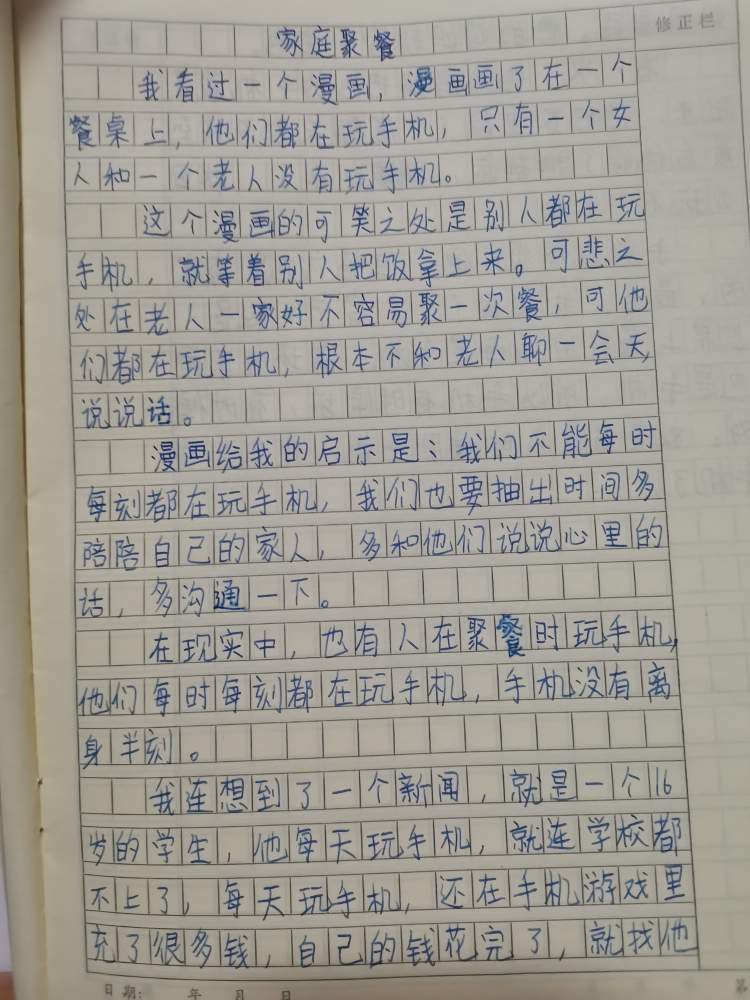 修正栏
家庭聚餐
我看过一个漫画，漫画画了在一个
餐桌上，他们都在玩手机，只有一个女
人和一个老人没有玩手机。
这个漫画的可笑之处是别人都在玩
手机，就等着别人把饭拿上来。可悲之
处在老人一家好不容易聚一次餐，可他
们都在玩手机，根本不和老人聊一会天，
说说话。
漫画给我的启示是：我们不能每时
每刻都在玩手机，我们也要抽出时间多
陪陪自己的家人，多和他们说说心里的
话，多沟通一下。
在现实中，也有人在聚餐时玩手机，
他们每时每刻都在玩手机，手机没有离
身半刻。
我连想到了一个新闻，就是一个16
岁的学生，他每天玩手机，就连学校都
不上了，每天玩手机，还在手机游戏里
充了很多钱，自己的钱花完了，就找他
日期： 年 月 日 第